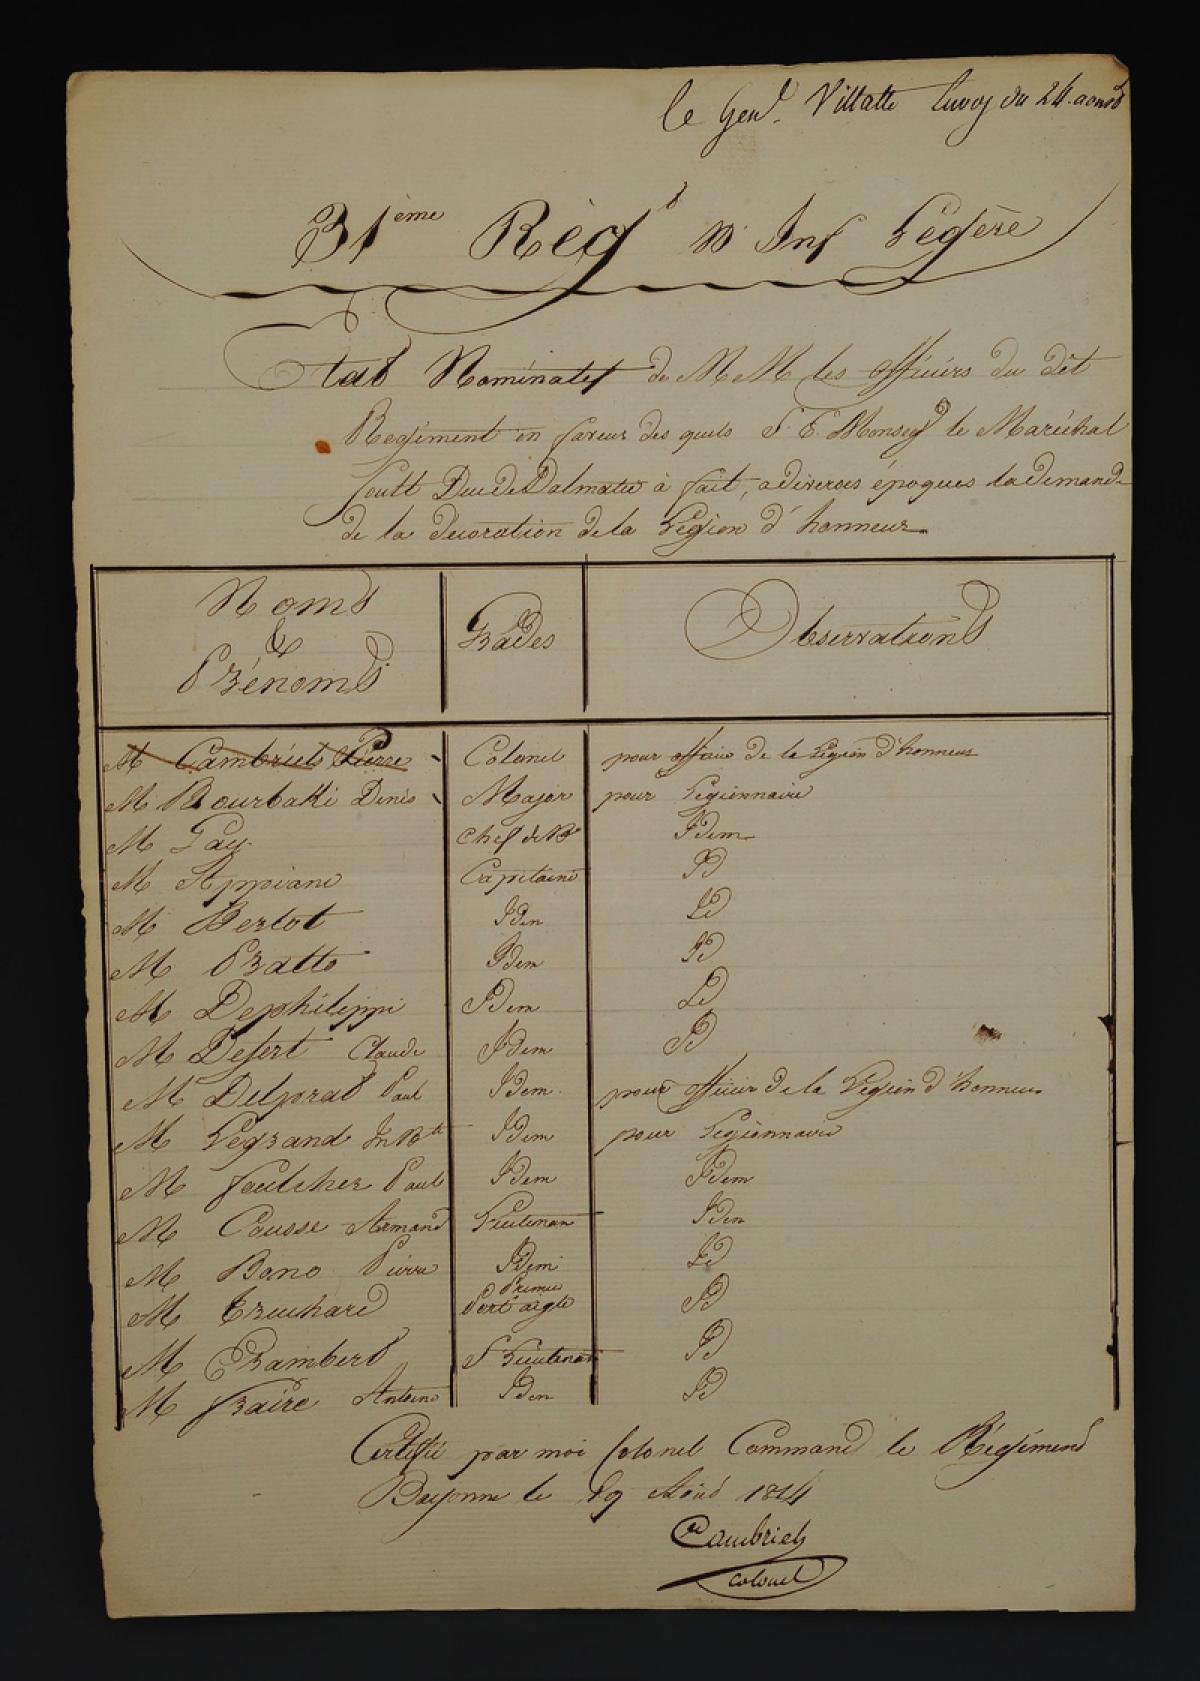 le Gen.l Villatte Envoy du 24. aoust
31ème Règt D'Inf Légère
Etat Nominatif de MM les officiers du dit
Regiment en faveur des quels S. E. Monseigr le Maréchal
Soult Duc de Dalmatie à fait, a diverses époques la demande
de la decoration de la Légion d'honneur
Noms & Prénoms Grades Observations
M Cambriels Pierre Colonel pour officier de la Légion d'honneur
M Bourbakki Denis Major pour Légionnaire
M Gay Chef de Bon Idem
M Appiani Capitaine Id
M Bertot Idem Id
M Pratto Idem Id
M Dephilippi Idem Id
M Desert Claude Idem Id
M Delprat Paul Idem pour officier de la Légion d'honneur
M Legrand Jn Bte Idem pour Légionnaire
M Foulcher Paul Idem Idem
M Cousse Armand Lieutenant Idem
M Bono Pierre Idem Id
M Truchard Premier Port'aigle Id
M Grambert S Lieutenant Id
M Fraire Antoine Idem Id
Certifié par moi Colonel Command le Régiment
Bayonne le 19 Août 1814
Cambriels
colonel